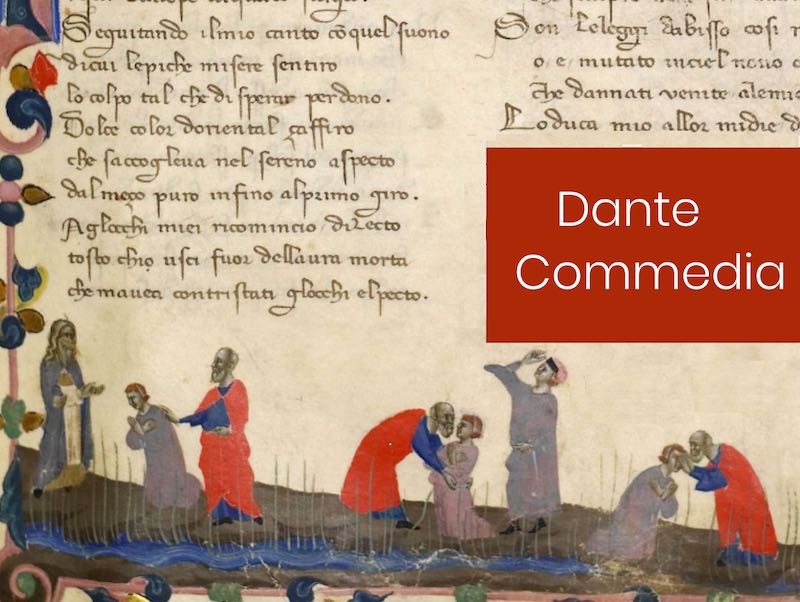 Seguitando ilmio canto cō quel suono
dicui lepiche misere sentiro
lo colpo tal che di sperar perdono.
Dolce color doriental çaffiro
che saccogleua nel sereno aspecto
dal meço puro infino alprimo giro.
Aglocchi miei ricomincio dilecto
tosto chio usci fuor dellaura morta
che mauea contristati glocchi elpecto.
Son leleggi dabisso cosi
o e mutato inciel nouo
che dannati venite alemie
Loduca mio allor midie
Dante
Commedia